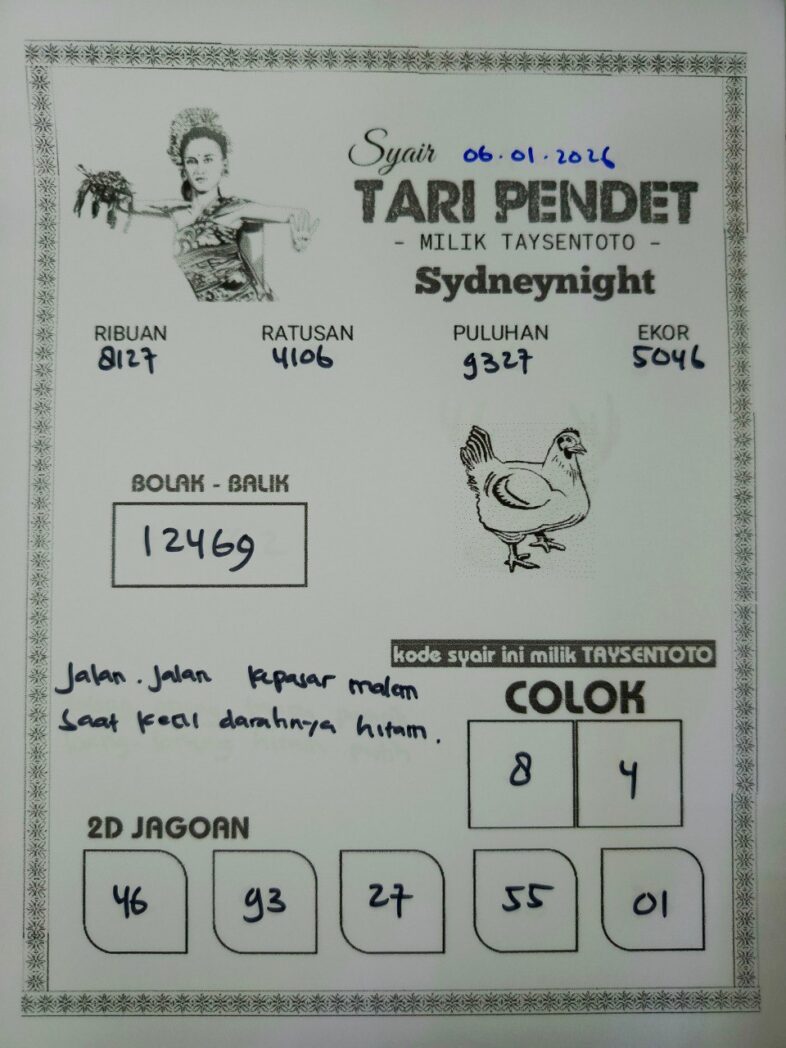 Syair 06.01.2026
TARI PENDET
- MILIK TAYSENTOTO -
Sydneynight
RIBUAN RATUSAN PULUHAN EKOR
8127 4106 9327 5046
BOLAK - BALIK
12469
kode syair ini milik TAYSENTOTO
Jalan.Jalan kepasar malem
Saat kecil darahnya hitam.
COLOK
8 4
2D JAGOAN
46 93 27 55 01